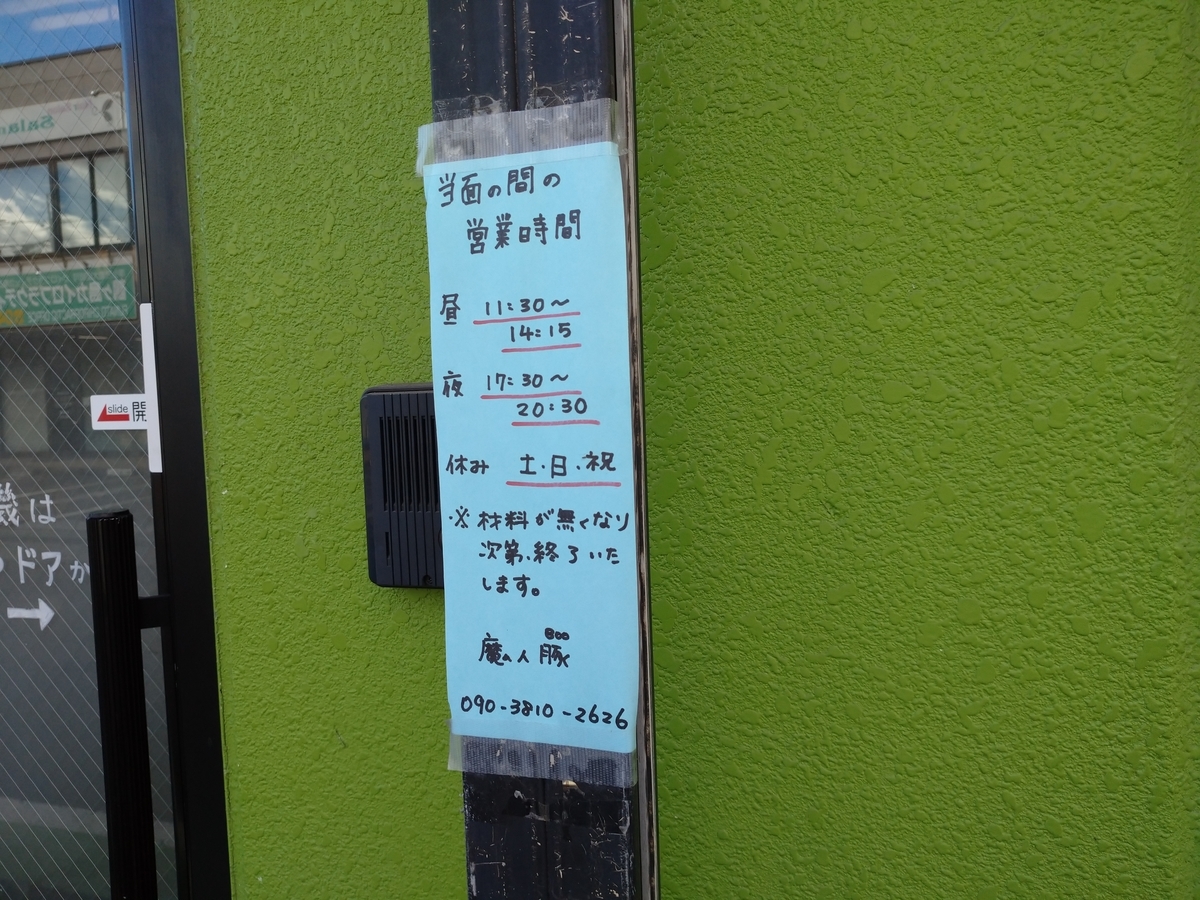 当面の間の
営業時間
昼 11:30～
14:15
夜 17:30～
20:30
休み 土・日・祝
※材料が無くなり
次第、終了いた
します。
Boo
魔人豚
090-3810-2626
slide 開
は
ドアか
→